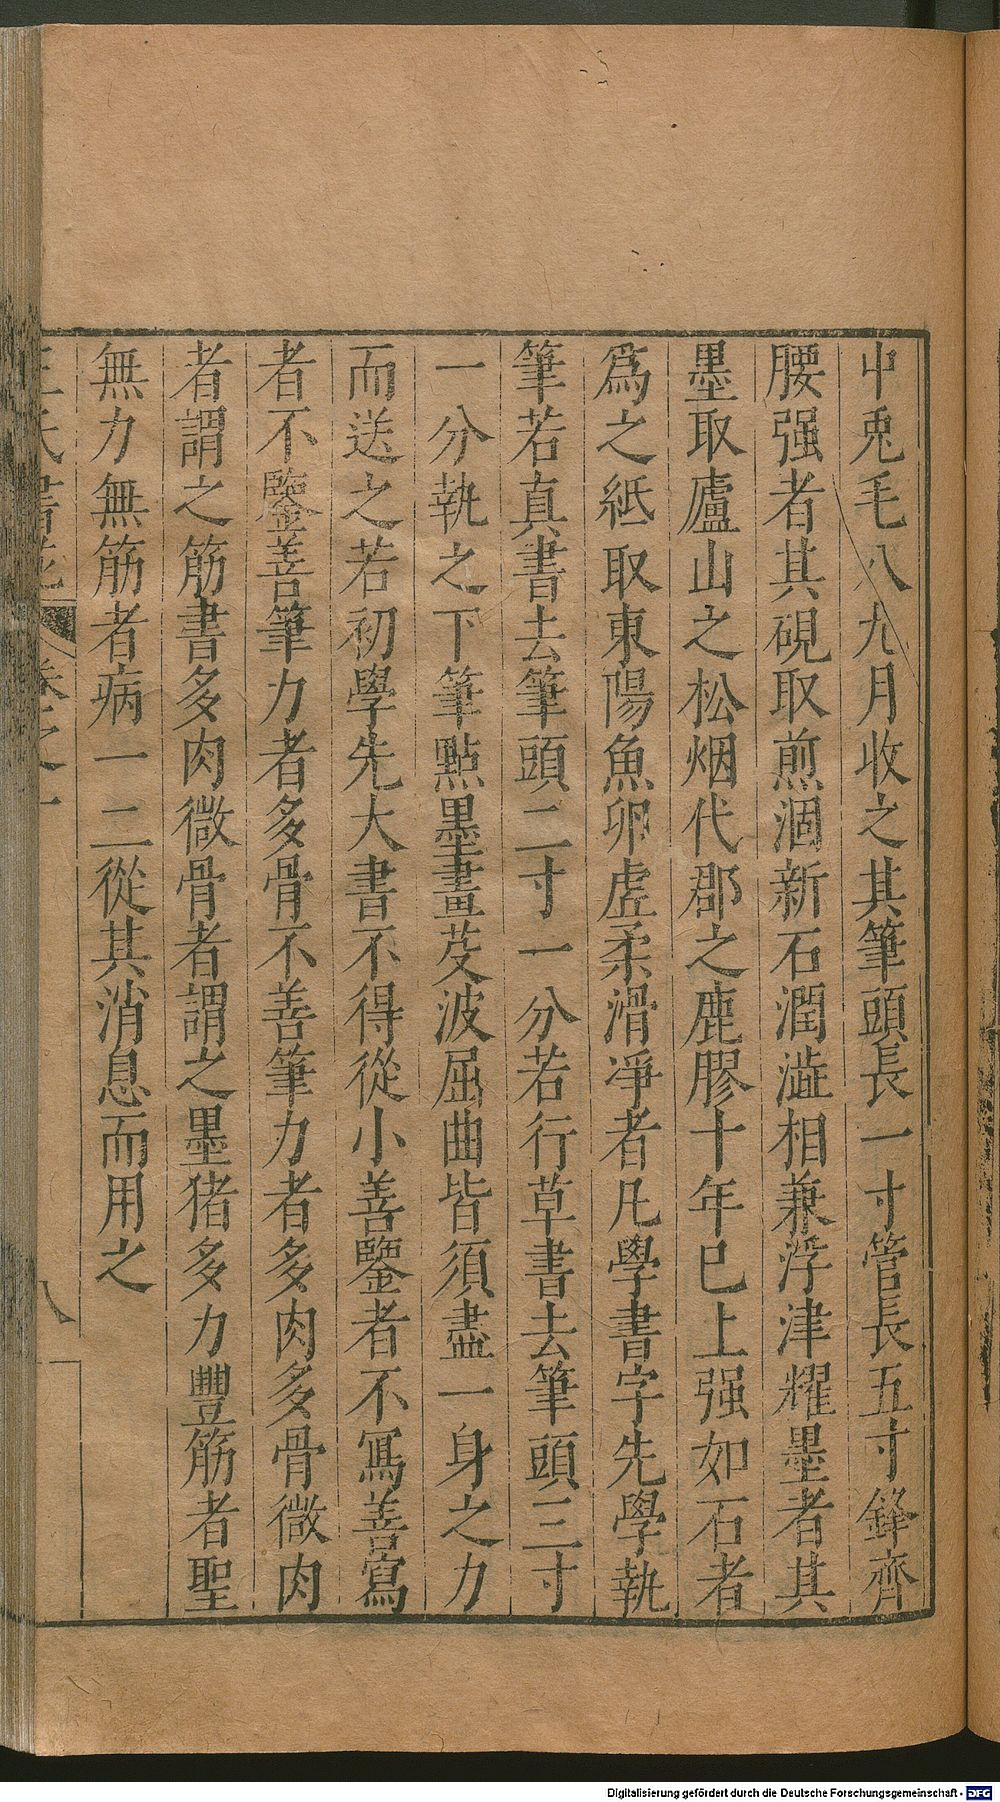 中兎毛八九月收之其筆頭長一寸管長五寸鋒齊
腰强者其硯取煎涸新石潤澁相兼浮津耀墨者其
墨取廬山之松烟代郡之鹿膠十年已上强如石者
爲之紙取東陽魚卵虛柔滑淨者凡學書字先學執
筆若真書去筆頭二寸一分若行草書去筆頭三寸
一分執之下筆點墨畫芟波屈曲皆須盡一身之力
而送之若初學先大書不得從小善鑒者不寫善寫
者不鑒善筆力者多骨不善筆力者多肉多骨微肉
者謂之筋書多肉微骨者謂之墨猪多力豐筋者聖
無力無筋者病一二從其消息而用之
王氏書苑 卷之一 八
Digitalisierung gefördert durch die Deutsche Forschungsgemeinschaft - DFG